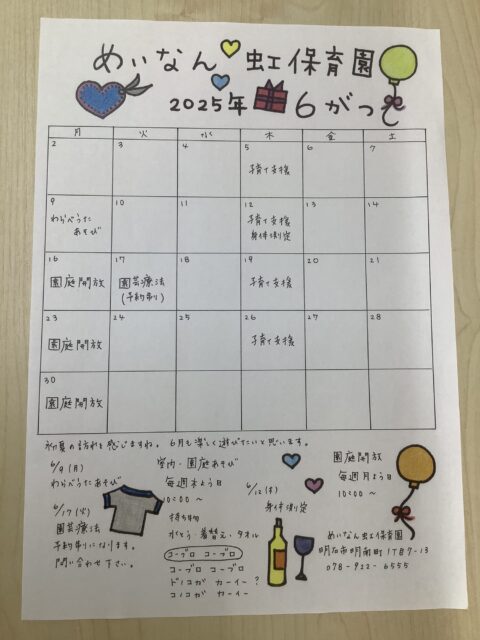 めいなん 虹保育園
2025年 6がつ
月 火 水 木 金 土
2 3 4 5 6 7
子育て支援
9 10 11 12 13 14
わらべうた
あそび
子育て支援
身体測定
16 17 18 19 20 21
園庭開放
園芸療法
(予約有り)
子育て支援
23 24 25 26 27 28
園庭開放
子育て支援
30
園庭開放
初夏の訪れを感じますね。 6月も楽しく遊びたいと思います。
6/9(月)
わらべうたあそび
6/17(火)
園芸療法
予約有りになります。
問い合わせ下さい。
室内・園庭あそび
毎週木よう日
10:00〜
持ち物
水とう・着替え・タオル
コーブロ コーブロ
コーブロ コーブロ
ドノコガ カーイー?
コノコガ カーイー
6/12(木)
身体測定
園庭開放
毎週月よう日
10:00〜
めいなん虹保育園
明石市明南町1丁目7-13
078-922-6555